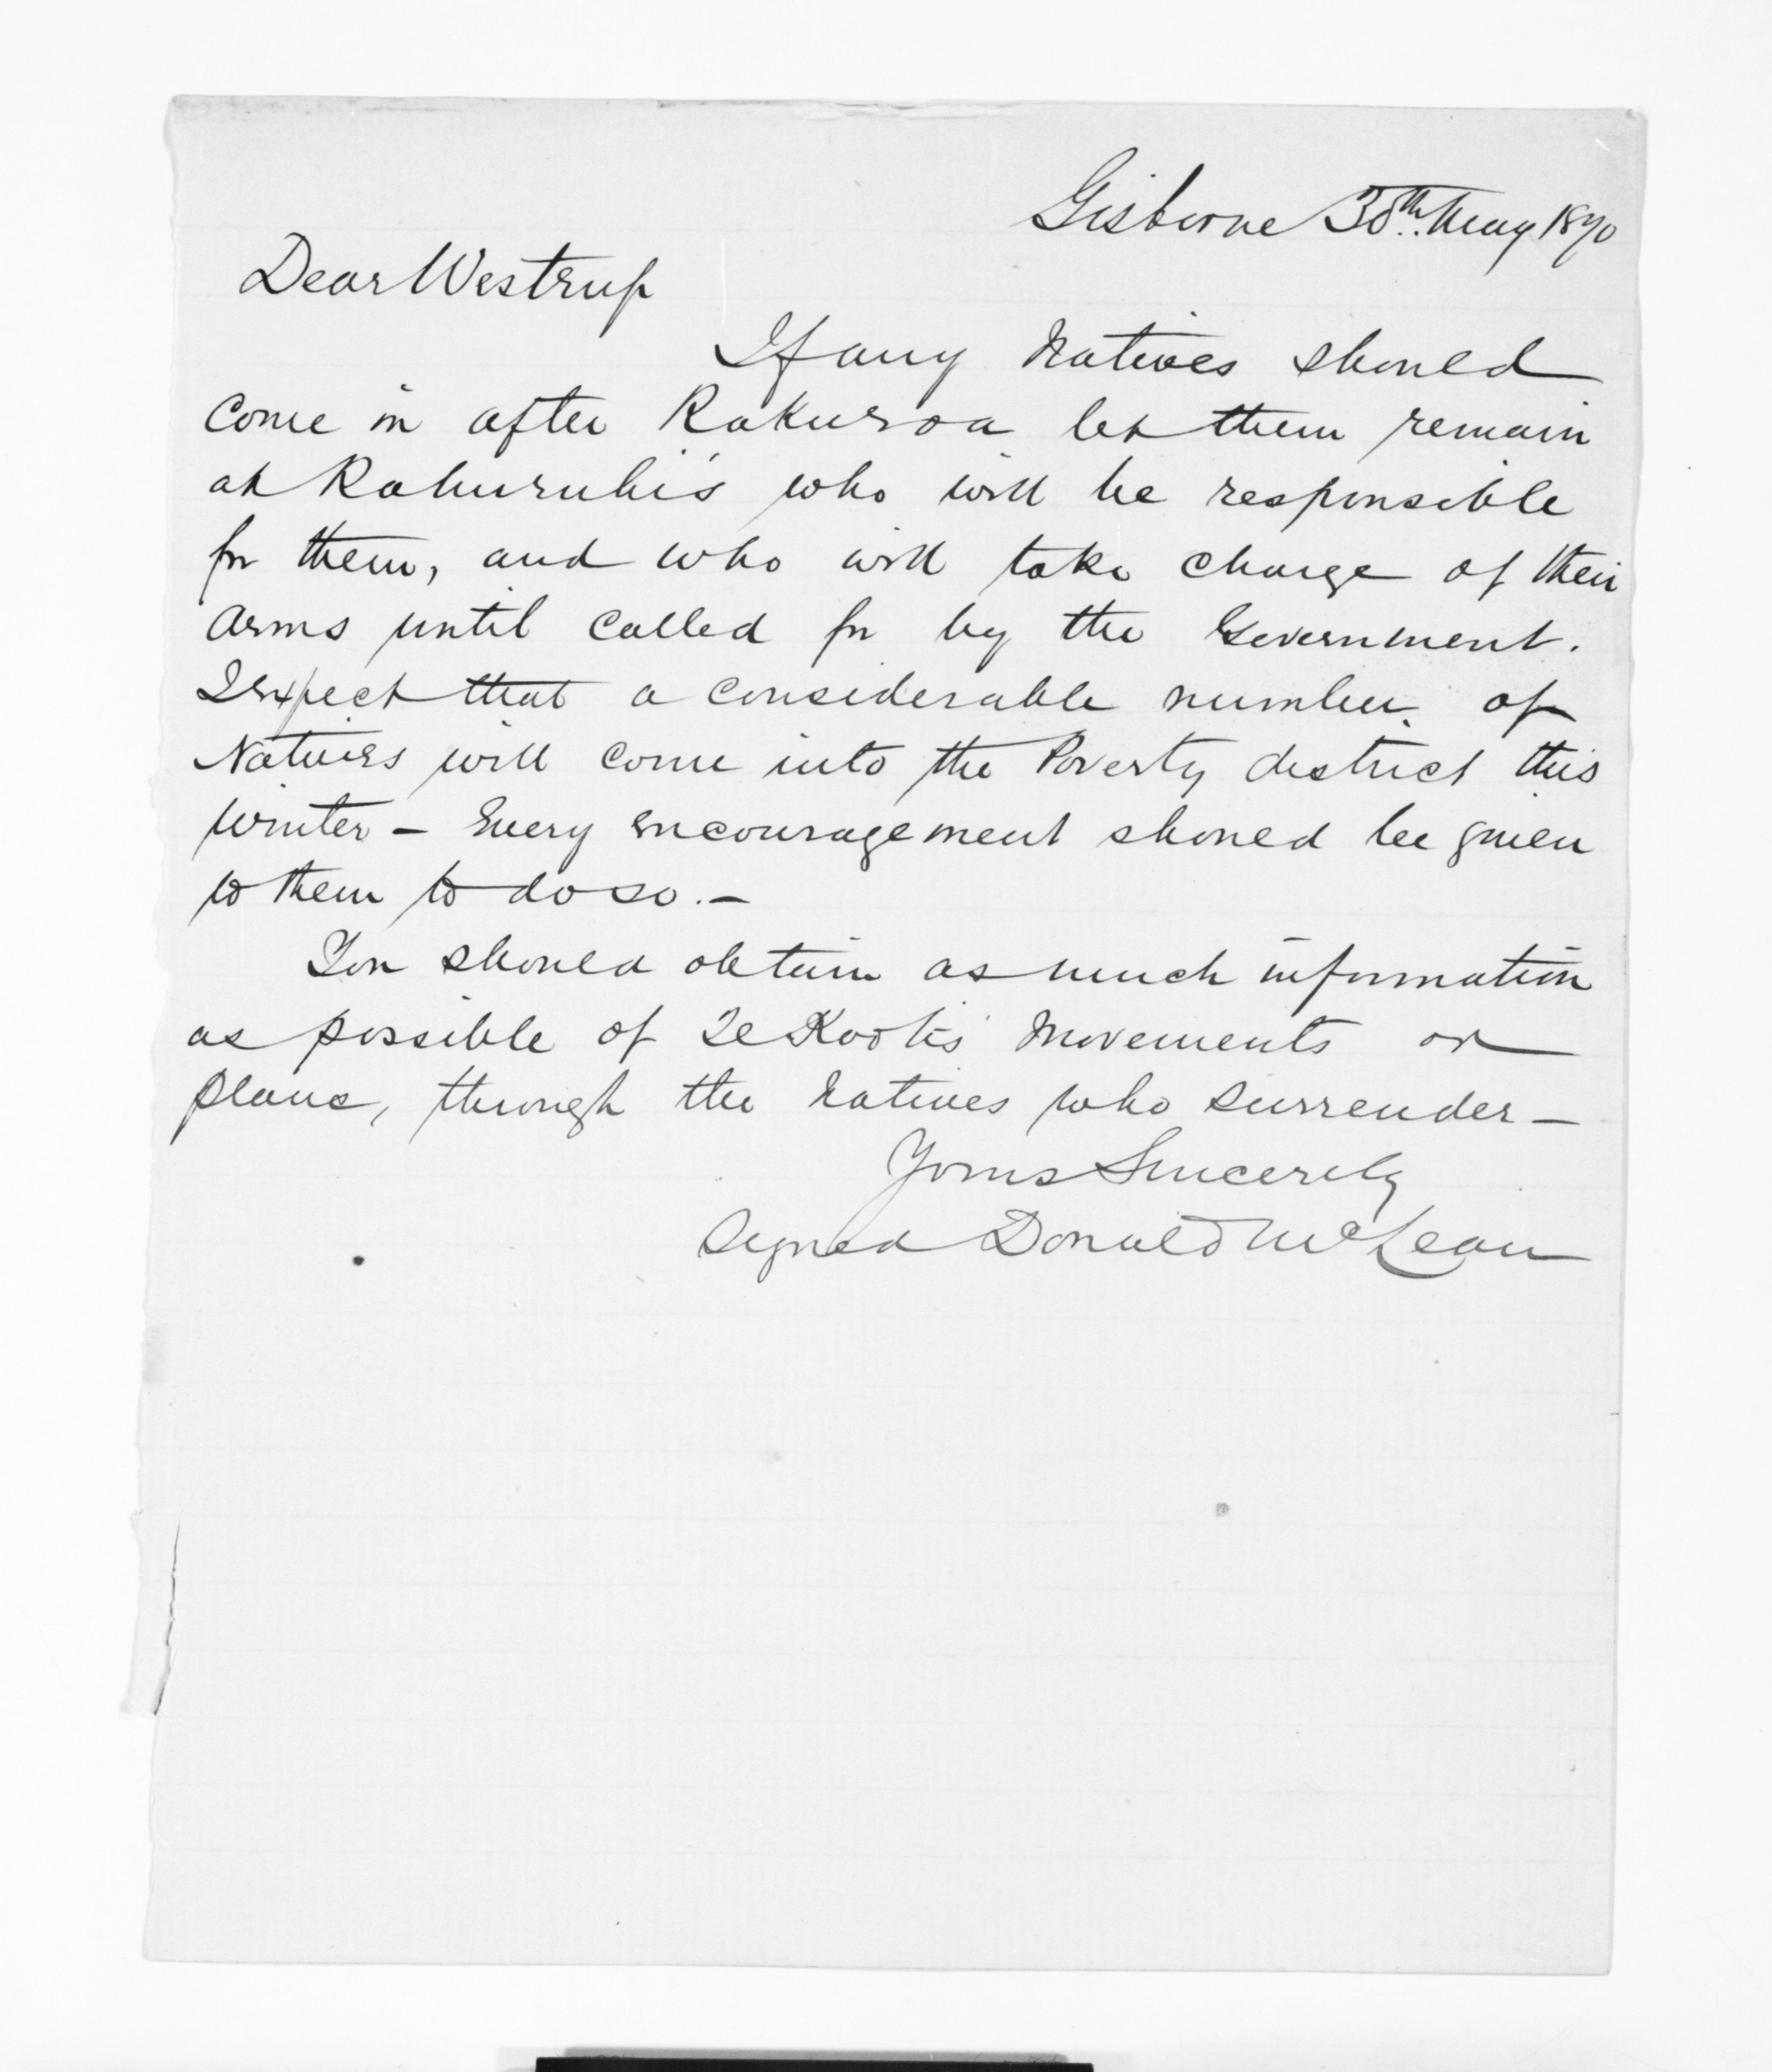 Gisborne 30th May 1870
Dear Westrup
If any Natives should
Come in after Rakuroa let them remain
at Rahuruhi's who will be responsible
for them, and who will take charge of their
Arms until called for by the Government.
I expect that a considerable number of
Natives will come into the Poverty district this
Winter – Every encouragement should be given
to them to do so. –
You should obtain as much information
as possible of Te Kooti's Movements or
plans, through the Natives who Surrender –
Yours Sincerely
Signed Donald McLean